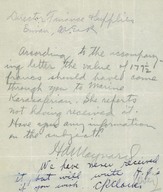 Director, Famine Supplies
According to the accompany
ing letter the value of 177½
francs should have come
through you to Maurice
. She reports
not having received it.
Have you any information
on the subject?
We have never received
it, but will write H.P.I.
if you wish